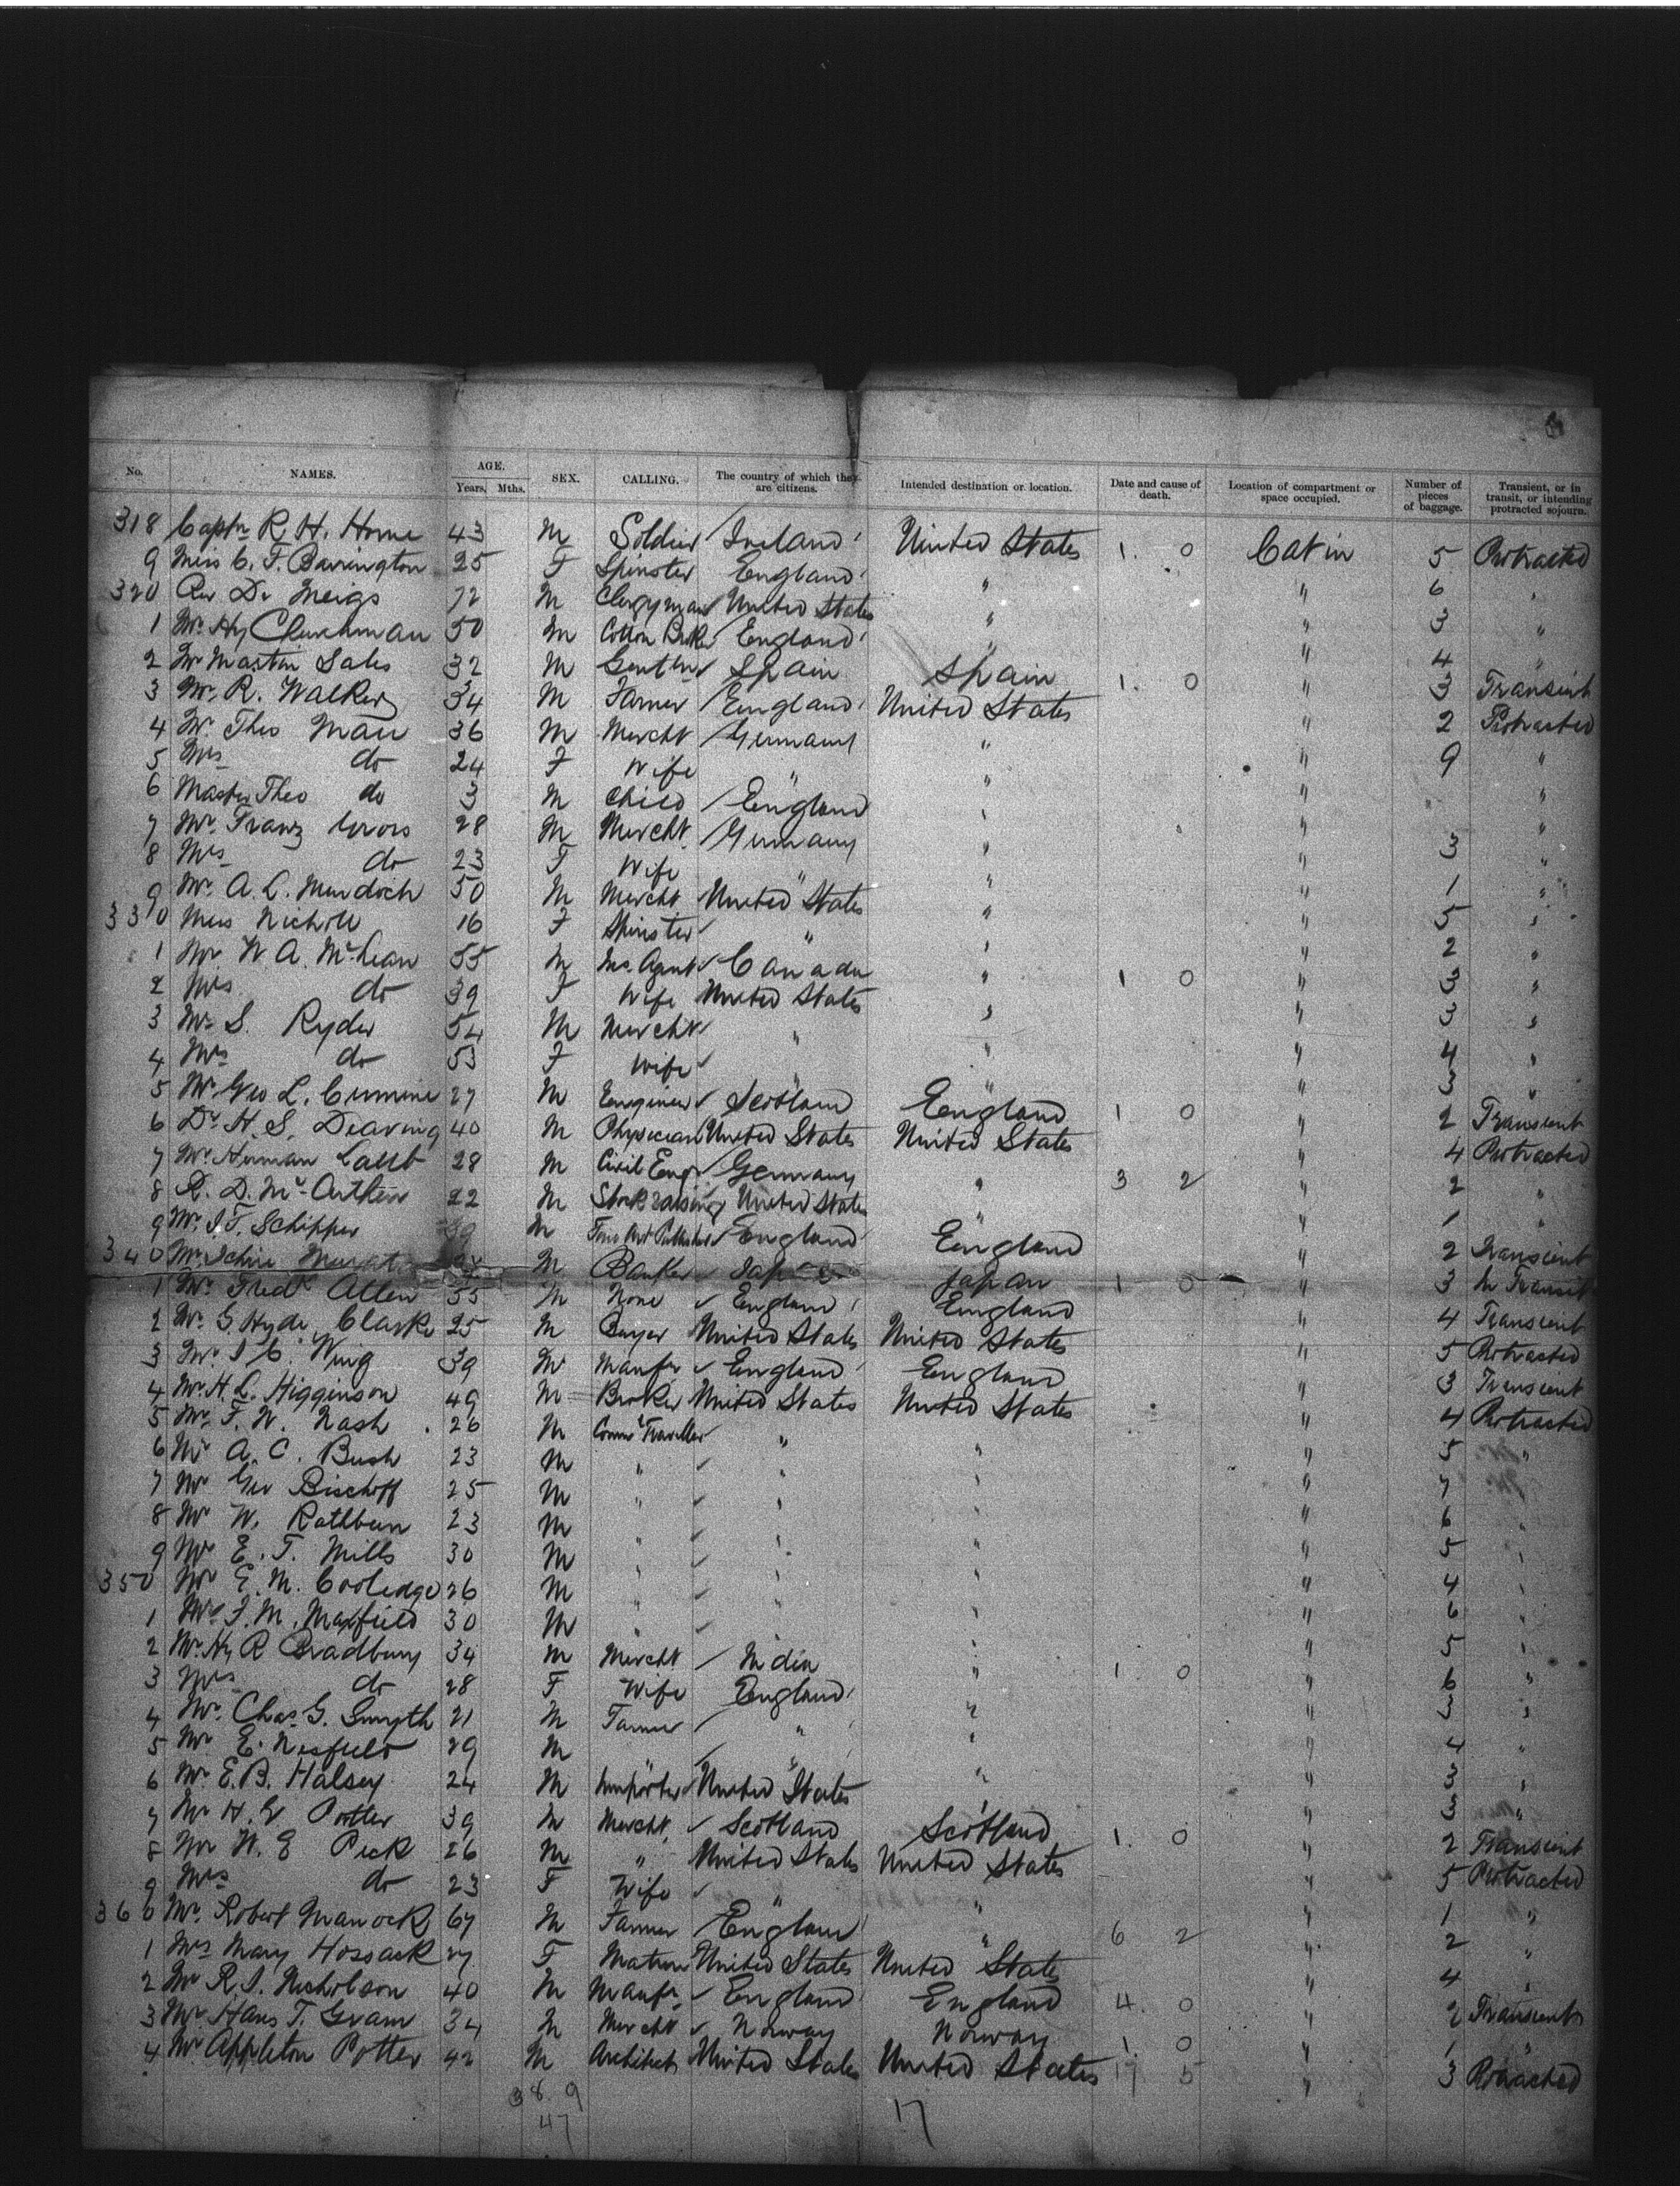 No. NAMES. AGE. Years. Mths. SEX. CALLING. The country of which they are citizens. Intended destination or location. Date and cause of death. Location of compartment or space occupied. Number of pieces of baggage. Transient, or in transit, or intending protracted sojourn.
318 Captn R. H. Horne 43 M Soldier Ireland United States 1. 0 Cabin 5 Protracted
9 Miss C. F. Barrington 25 F Spinster England " " 6 "
320 Rev Dr Meigs 72 M Clergyman United States " " 3 "
1 Mr. Hy 50 M Cotton Broker England " " 4 "
2 Mr Martin Sales 32 M Gentln Spain Spain 1. 0 " 3 Transient
3 Mr. R. Walker 34 M Farmer England United States " 2 Protracted
4 Mr. Theo Mau 36 M Mercht Germany " " 9 "
5 Mrs do 24 F Wife " " " "
6 Master Theo do 3 M Child England " " "
7 Mr. Franz 28 M Mercht. Germany " " 3 "
8 Mrs do 23 F Wife " " " 1 "
9 Mr. A. L. Murdoch 50 M Mercht United States " " 5 "
330 Miss Nicholl 16 F Spinster " " " 2 "
1 Mr W. A. McLean 55 M Ins. Agent Canada " 1 0 " 3 "
2 Mrs do 39 F Wife United States " " 3 "
3 Mr S. Ryder 54 M Mercht " " " 4 "
4 Mrs do 53 F Wife " " " 3 "
5 Mr. Geo L. Cumine 27 M Engineer Scotland England 1 0 " 2 Transient
6 Dr. H. S. Dearing 40 M Physician United States United States " 4 Protracted
7 Mr Herman 28 M Civil Engr Germany " 3 2 " 2 "
8 R. D. Mc 22 M Stock raising United States " " 1 "
9 Mr. J. F. Schipper 39 M England England " 2 Transient
340 Mr. M Banker Japan Japan 1 0 " 3 In Transit
1 Mr. Fredk Allen 55 M None England England " 4 Transient
2 Mr. G. Hyde Clarke 25 M Buyer United States United States " 5 Protracted
3 Mr. J C. Wing 39 M Manfr England England " 3 Transient
4 Mr H. L. Higginson 49 M Broker United States United States " 4 Protracted
5 Mr. F. W. Nash 26 M Comml Traveller " " " 5 "
6 Mr A. C. Bush 23 M " " " " 7 "
7 Mr Geo Bischoff 25 M " " " " 6 "
8 Mr W. Rathbun 23 M " " " " 5 "
9 Mr E. T. Mills 30 M " " " " 4 "
350 Mr E. M. Cooledge 26 M " " " " 6 "
1 Mr. F. M. Maxfield 30 M " " " " 5 "
2 Mr. Hy R Bradbury 34 M Mercht India " 1 0 " 6 "
3 Mrs do 28 F Wife England " " 3 "
4 Mr. Chas. G. Smyth 21 M Farmer " " " 4 "
5 Mr E. Nesfield 29 M " " " " 3 "
6 Mr. E. B. Halsey 24 M Importer United States " " 3 "
7 Mr H. Potter 39 M Mercht. Scotland Scotland 1. 0 " 2 Transient
8 Mr W. E Peck 26 M " United States United States " 5 Protracted
9 Mrs do 23 F Wife " " " 1 "
360 Mr. Robert Manock 67 M Farmer England " 6 2 " 2 "
1 Mrs Mary Hossack 27 F Matron United States United States " 4 "
2 Mr R. J. Nicholson 40 M Manfr. England England 4. 0 " 2 Transient
3 Mr Hans T. Gram 34 M Mercht Norway Norway 1. 0 " 1 "
4 Mr Appleton Potter 42 M Architect United States United States 17 5 " 3 Protracted
38. 9
47 17